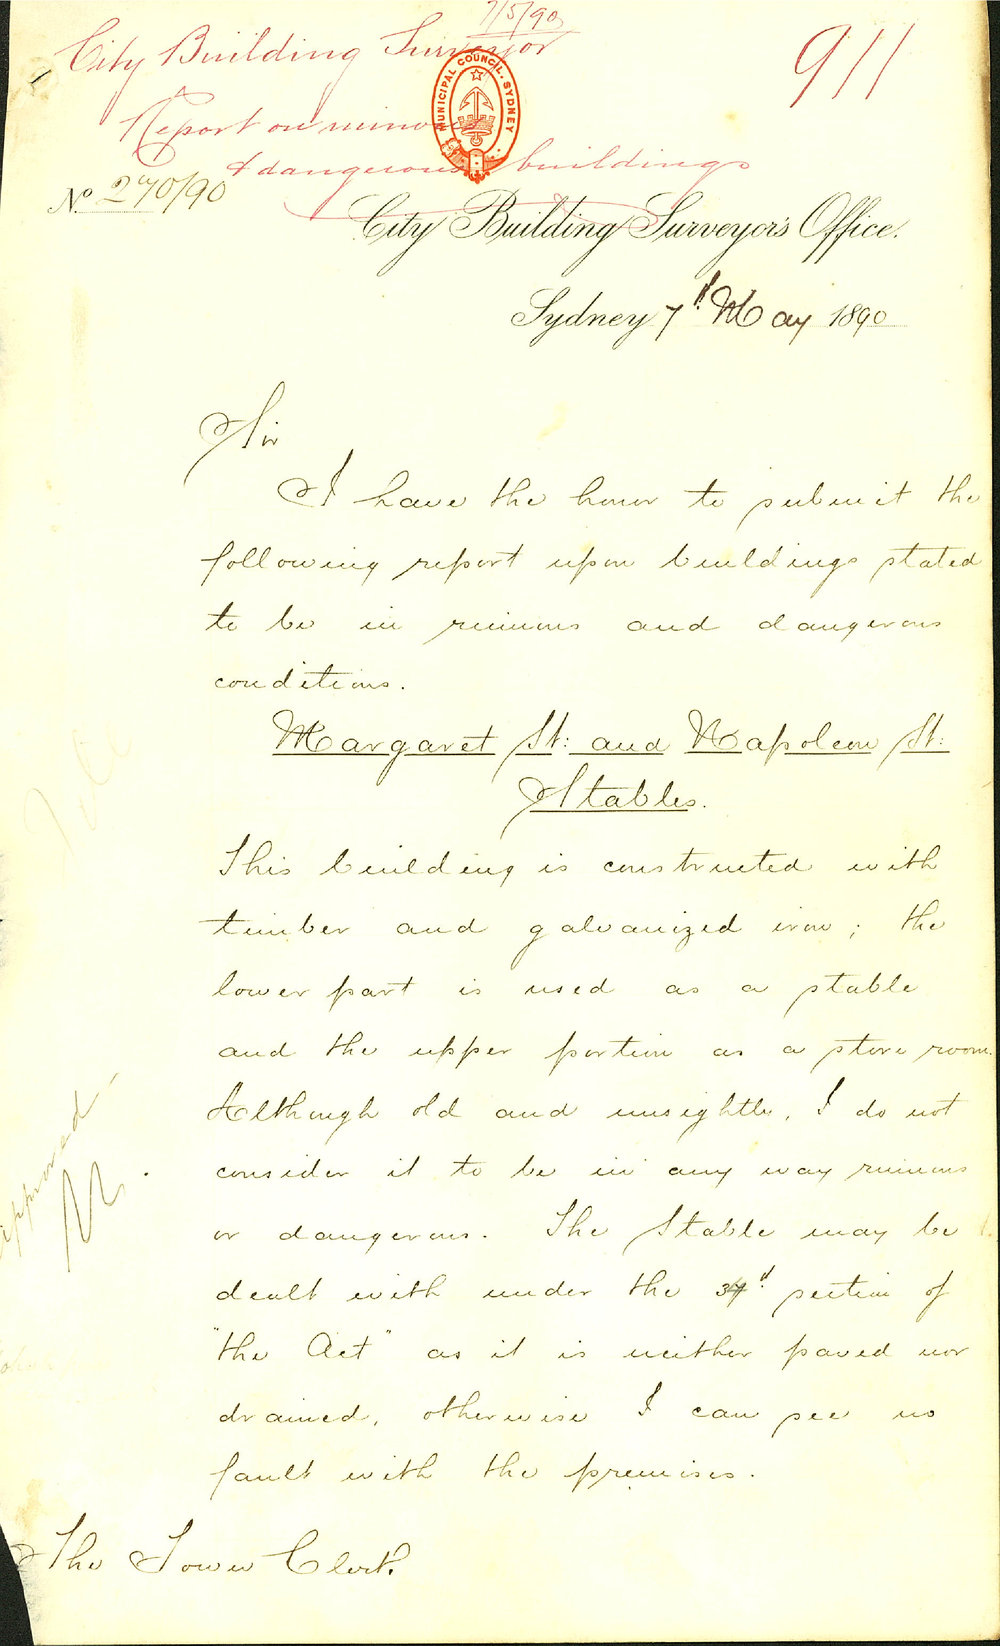 7/5/90
City Building Surveyor
911
Report on ruinous
& dangerous buildings
MUNICIPAL COUNCIL, SYDNEY
No 270/90
City Building Surveyor's Office.
Sydney 7th May 1890
Sir
I have the honor to submit the
following report upon buildings stated
to be in ruinous and dangerous
conditions.
Margaret St: and Napoleon St:
Stables.
This building is constructed with
timber and galvanized iron; the
lower part is used as a stable
and the upper portion as a store room.
Although old and unsightly, I do not
consider it to be in any way ruinous
or dangerous. The Stable may be
dealt with under the section of
"the Act" as it is neither paved nor
drained, otherwise I can see no
fault with the premises.
approved
The Town Clerk.